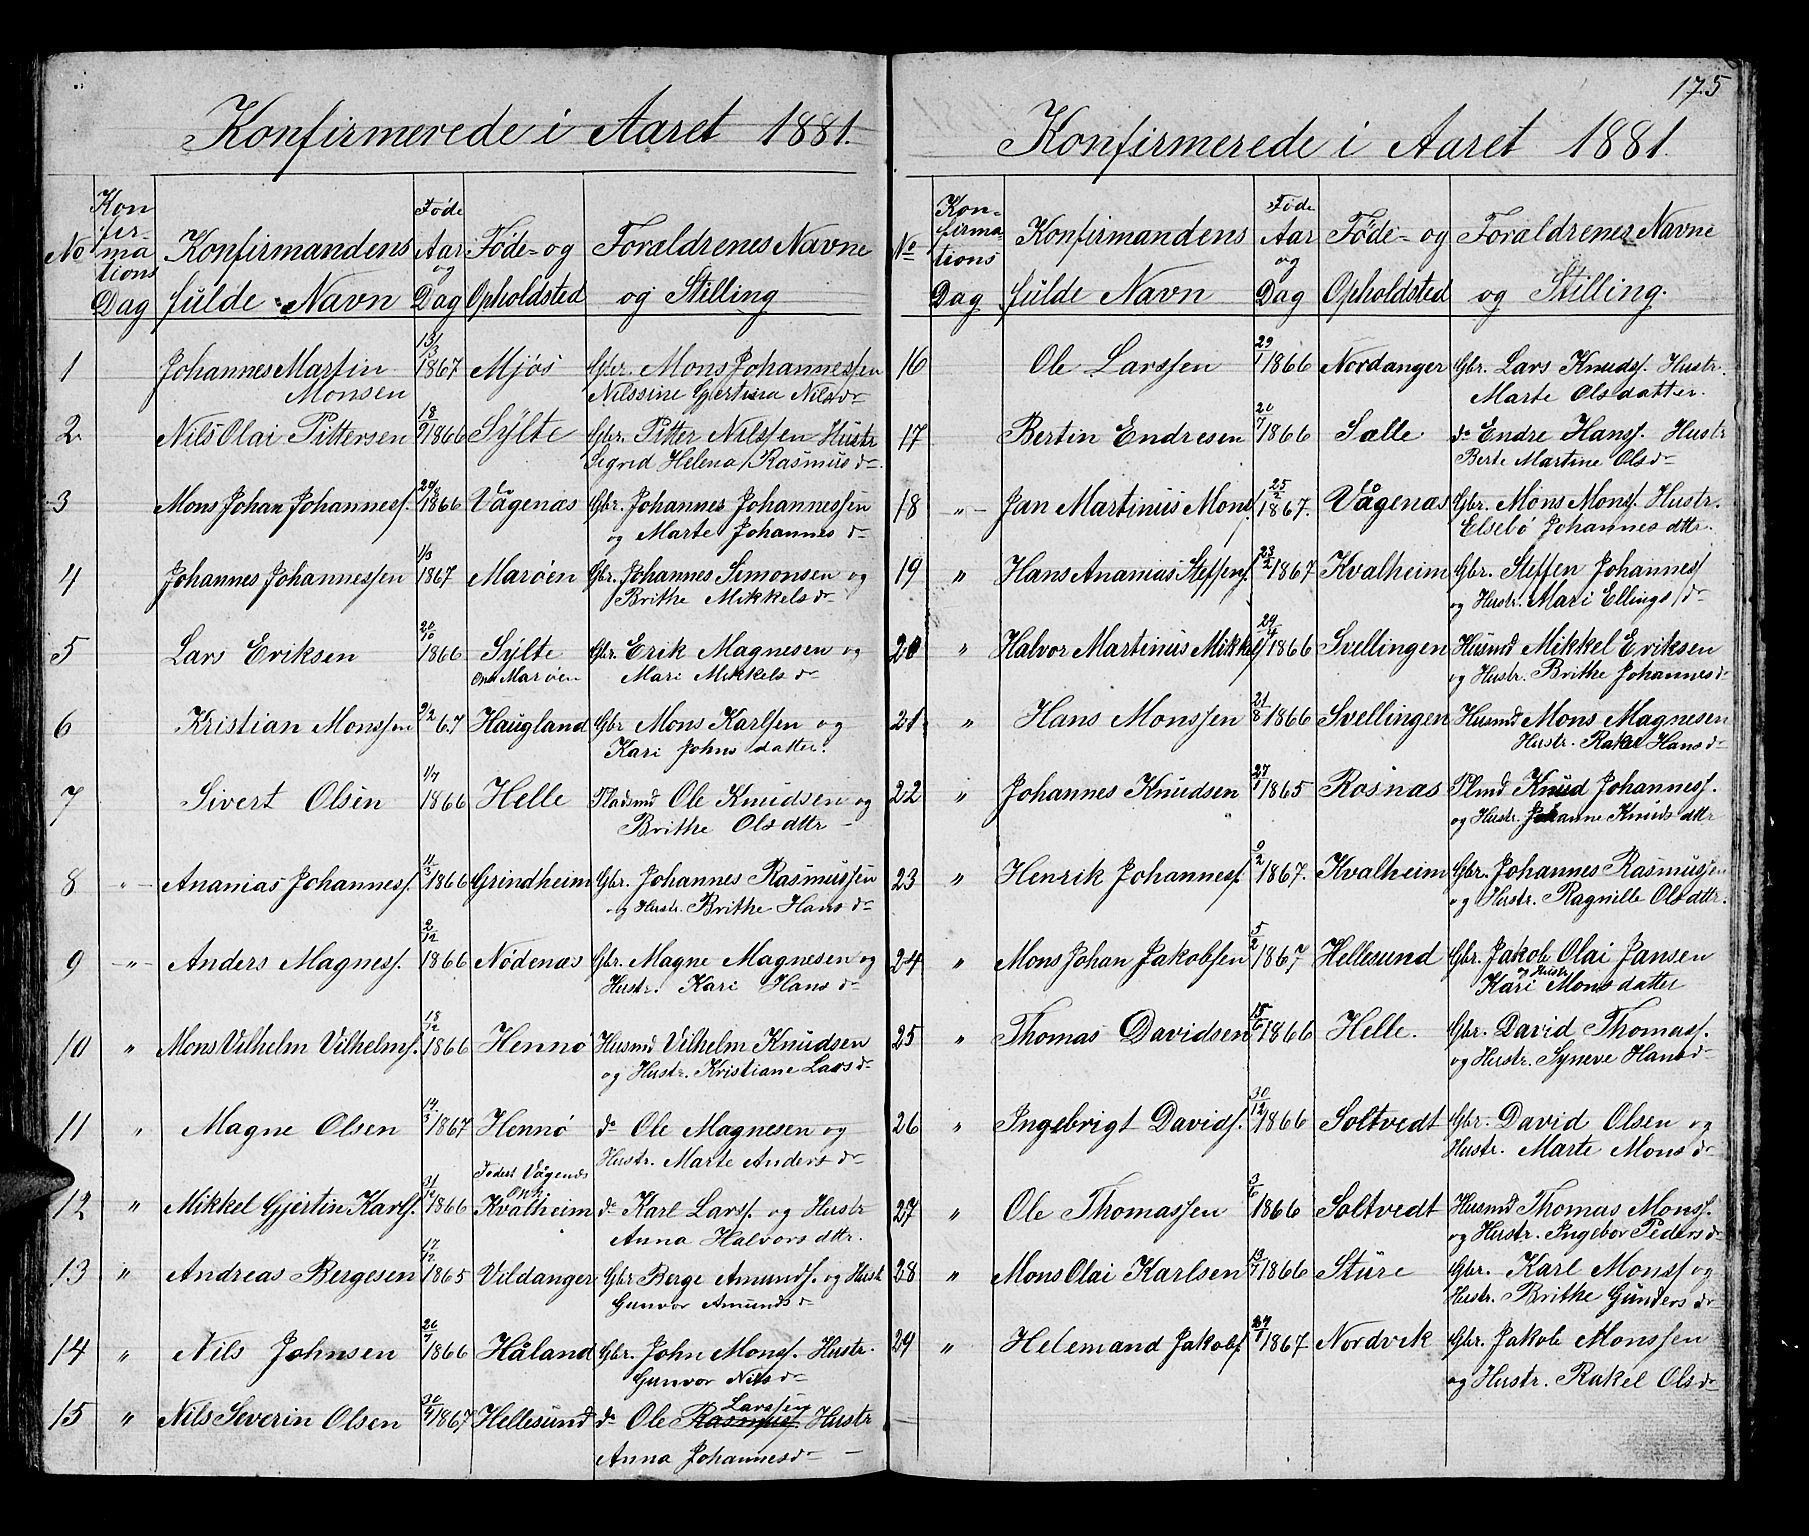 Konfirmerede i Aaret 1881.
No
Konfirmations Dag
Konfirmandens fulde Navn
Føde Aar og Dag
Føde- og Opholdsted
Foraldrenes Navne og Stilling
1 Johannes Martin 13/3 1867 Mjøs Gbr. Mons Johannessen
Monsen Nilssine Gjertina Nilsdr
2. Nils Olai Pittersen 18/9 1866 Sylte Gbr. Pitter Nilssen Hustr
Sigrid Helena Rasmusdr
3 Mons Johan Johanness. 1866 Vågenas Gbr. Johannes Johannessen
og Marte Johannes dr
4 Johannes Johannessen 1/3 1867 Marøen Gbr. Johannes Simonsen og
Brithe Mikkelsdr
5 Lars Eriksen 20/10 1866 Sylte Gbr. Erik Magnesen og
Marøen Mari Mikkels dr
6 Kristian Monssen 2/2 67 Haugland Gbr Mons Karlsen og
Kari Johns datter.
7 Sivert Olsen 1/7 1866 Helle Pladsmd Ole Knudsen og
Brithe Olsdttr
8 " Ananias Johanness. 11/3 1866 Grindheim Gbr. Johannes Rasmussen
og Hustr. Brithe Hansdr
9 " Anders Magness. 2/12 1866 Nødenas Gbr. Magne Magnesen og
Hustr. Kari Hansdr
10 " Mons Vilhelm Vilhelms. 18/12 1866 Hennø Husmd Vilhelm Knudsen
og Hustr. Kristiane Larsdr
11 " Magne Olsen 14/3 1867 Hennø do Ole Magnesen og
Hustr. Marte Andersdr
Fødest Vågenes
12 " Mikkel Gjertin Karls. 1866 Kvalheim do Karl Larss. og Hustr
Anna Halvorsdttr.
13 " Andreas Bergesen 17/12 1865 Vildanger Gbr Berge Amunds. og Hustr
Gunvor Amundsdr
14 " Nils Johnsen 1866 Håland Gbr. John Monss. Hustr.
Gunvor Nilsdr
Larssen
15 " Nils Severin Olsen 1867 Hellesund do Ole Rasmuss. Hustr
Anna Johannesdr
175
Konfirmerede i Aaret 1881.
No
Konfirmations Dag
Konfirmandens fulde Navn
Føde Aar og Dag
Føde- og Opholdsted
Foraldrenes Navne og Stilling.
16 Ole Larssen 29/1 1866 Nordanger Gbr. Lars Knuds. Hustr.
Marte Olsdatter.
17 Bertin Endresen 1866 Salle do Endre Hans. Hustr
Berte Martine Olsdr
18 " Jan Martinus Mons. 25/2 1867. Vågenas Gbr. Mons Mons. Hustr.
Elsebø Johannes dttr.
19 " Hans Ananias Steffens. 23/2 1867 Kvalheim Gbr. Steffen Johannes.
og Hustr. Mari Ellings dr
20 " Halvor Martinus Mikkels. 29/4 1866 Svellingen Husmd Mikkel Eriksen
og Hustr. Brithe Johannesdr
21 " Hans Monssen 21/8 1866 Svellingen Husmd Mons Magnesen
Hustr. Rakel Hansdr
22 " Johannes Knudsen 27/1 1865 Rosnas Plmd Knud Johanness.
og Hustr. Johanne Knuds dttr
23 " Henrik Johanness. 1867. Kvalheim Gbr. Johannes Rasmussen
og Hustr. Ragnille Olsdttr.
24 " Mons Johan Jakobsen 5/2 1867 Hellesund Gbr. Jakob Olai Jansen
og Hustr
Kari Monsdatter
25 " Thomas Davidsen 15/6 1866 Helle. Gbr. David Thomass.
og Hustr. Syneve Hansdr
26 " Ingebrigt Davids. 30/12 1866 Soltvedt Gbr. David Olsen og
Hustr. Marte Monsdr
27 " Ole Thomassen 3/6 1866 Soltvedt Husmd Thomas Monss.
og Hustr. Ingebor Pedersdr
28 " Mons Olai Karlsen 1866 Sture Gbr. Karl Monss og
Hustr. Brithe Gunders dr
29 " Helemand Jakobs. 1867 Nordvik Gbr. Jakob Monssen
og Hustr. Rakel Olsdr